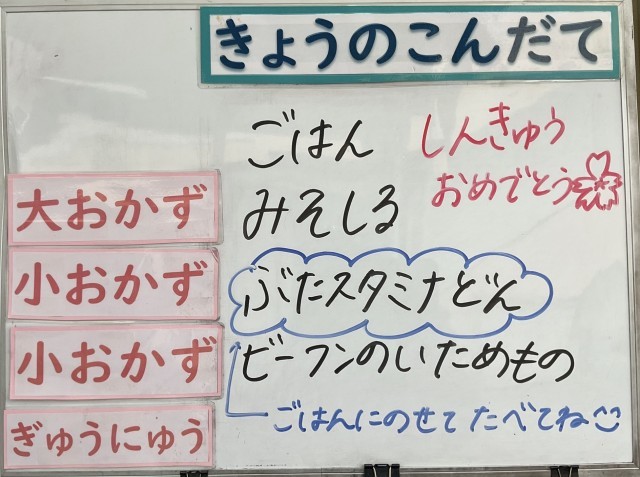 きょうのこんだて
ごはん
しんきゅう
おめでとう
大おかず
みそしる
小おかず
ぶたスタミナどん
小おかず
ビーフンのいためもの
ごはんにのせて たべてね
ぎゅうにゅう